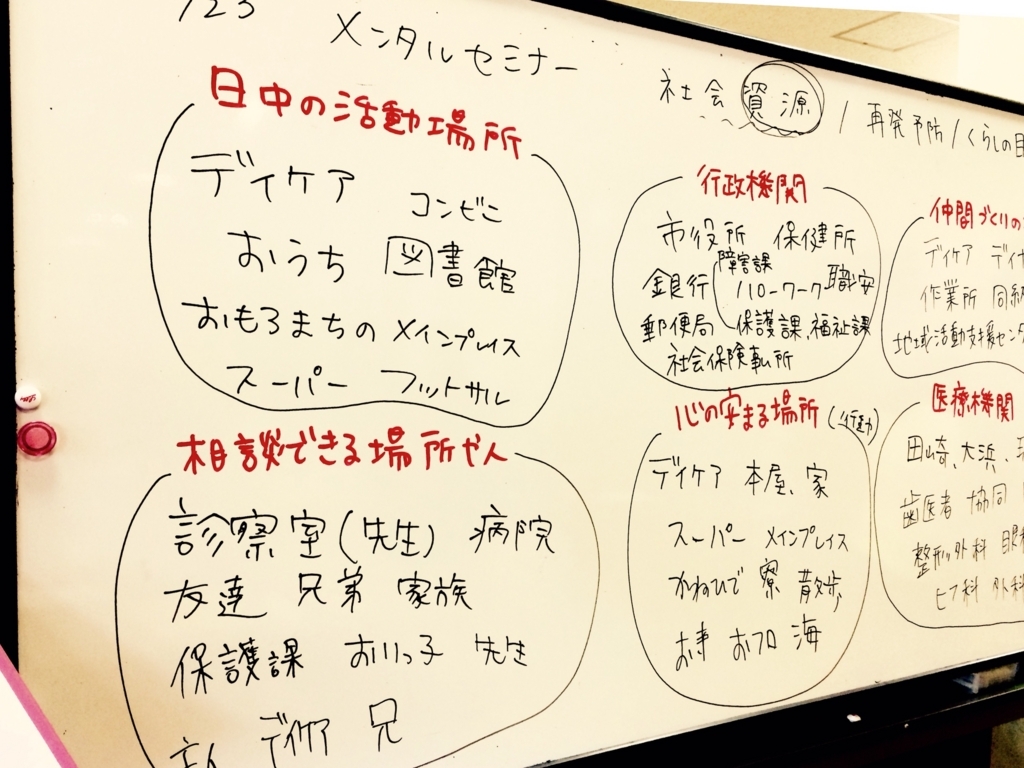 /23
メンタルセミナー
社会資源 / 再発予防 / くらしの
日中の活動場所
デイケア コンビニ
おうち 図書館
おもろまちの メインプレイス
スーパー フットサル
相談できる場所や人
診察室(先生) 病院
友達 兄弟 家族
保護課 おいっ子 先生
デイケア 兄
行政機関
市役所 保健所
障害課
銀行 ハローワーク 職安
郵便局 保護課、福祉課
社会保険事ム所
心の安まる場所 (行動)
デイケア 本屋、家
スーパー メインプレイス
かねひで 寮 散歩
お寺 おフロ 海
仲間づくりの
デイケア デイ
作業所 同
地域活動支援センタ
医療機関
田崎、大浜、
歯医者 協同
整形外科 眼
ヒフ科 外科